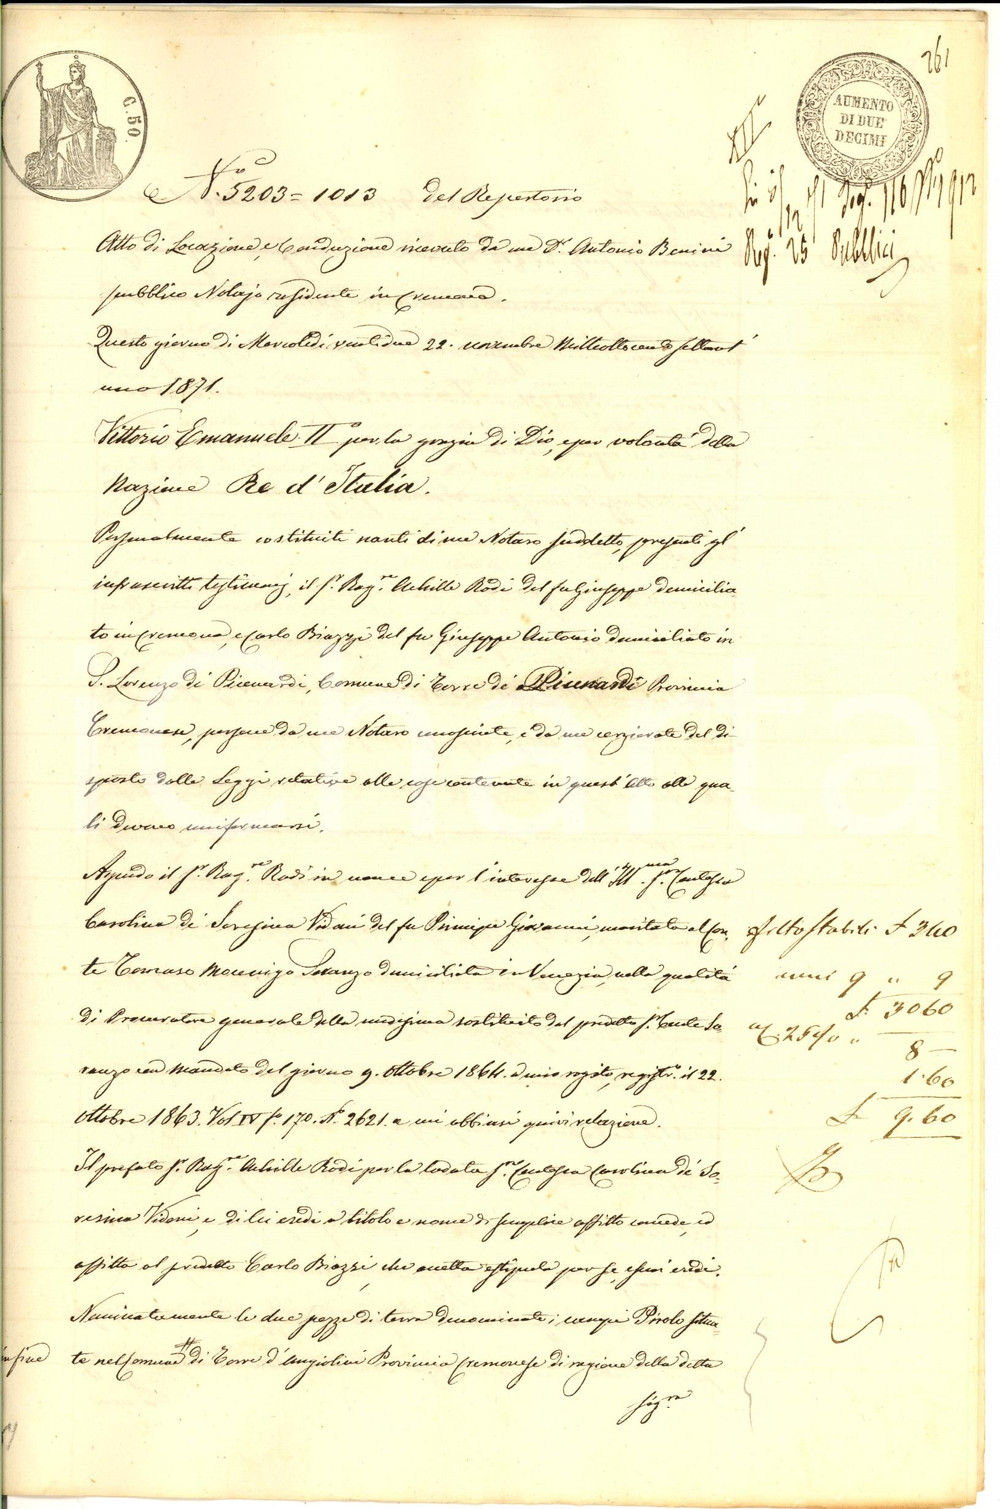 261
C. 50.
AUMENTO
DI DUE
DECIMI
XII
Reg. 25 Pubblici
N.° 5203 = 1013 del Repertorio
Atto di Locazione, e Conduzione ricevuto da me D.r Antonio Benini
pubblico Notajo residente in Cremona.
Questo giorno di Mercoledì ventidue 22. novembre Milleottocento settant'
uno 1871.
Vittorio Emanuele II° per la grazia di Dio, e per volontà della
Nazione Re d'Italia.
Personalmente costituiti nanti di me Notaro suddetto, presenti gl'
infrascritti testimonj, il S.r Rag.re Achille Rodi del fu Giuseppe domicilia
to in Cremona, e Carlo Biazzi del fu Giuseppe Antonio domiciliato in
S. Lorenzo di Picenardi, Comune di Torre de' Picenardi Provincia
Cremonese, persone da me Notaro conosciute, e da me cerziorate del di-
sposto dalle Leggi relative alle cose contenute in quest'Atto alle qua-
li devono uniformarsi.
Agendo il S.r Rag.re Rodi in nome e per l'interesse dell'Ill.ma S.ra Contessa
Carolina di Soresina Vidoni del fu Principe Giovanni, maritata al Con-
te Tomaso Mocenigo Soranzo domiciliata in Venezia, nella qualità
di Procuratore generale della medesima sostituito dal predetto S.r Conte So-
ranzo con Mandato del giorno 9. ottobre 1864. a mio rogito, registr.o il 22.
ottobre 1863. Vol IV f.o 170. N.o 2621. a cui abbiasi quivi relazione.
Il prefato S.r Rag.re Achille Rodi per la lodata S.ra Contessa Carolina di So-
resina Vidoni, e di lei eredi a titolo e nome di semplice affitto concede, ed
affitta al predetto Carlo Biazzi, che accetta e stipula per se, e suoi eredi.
Nominatamente le due pezze di terra denominate i campi Pirolo situa-
te nel Comune di Torre d'Angiolini Provincia Cremonese di ragione della detta
Sig.ra
Fitto stabili £ 340
anni 9 " 9
£ 3060
8 —
1.60
£ 9.60
in fine